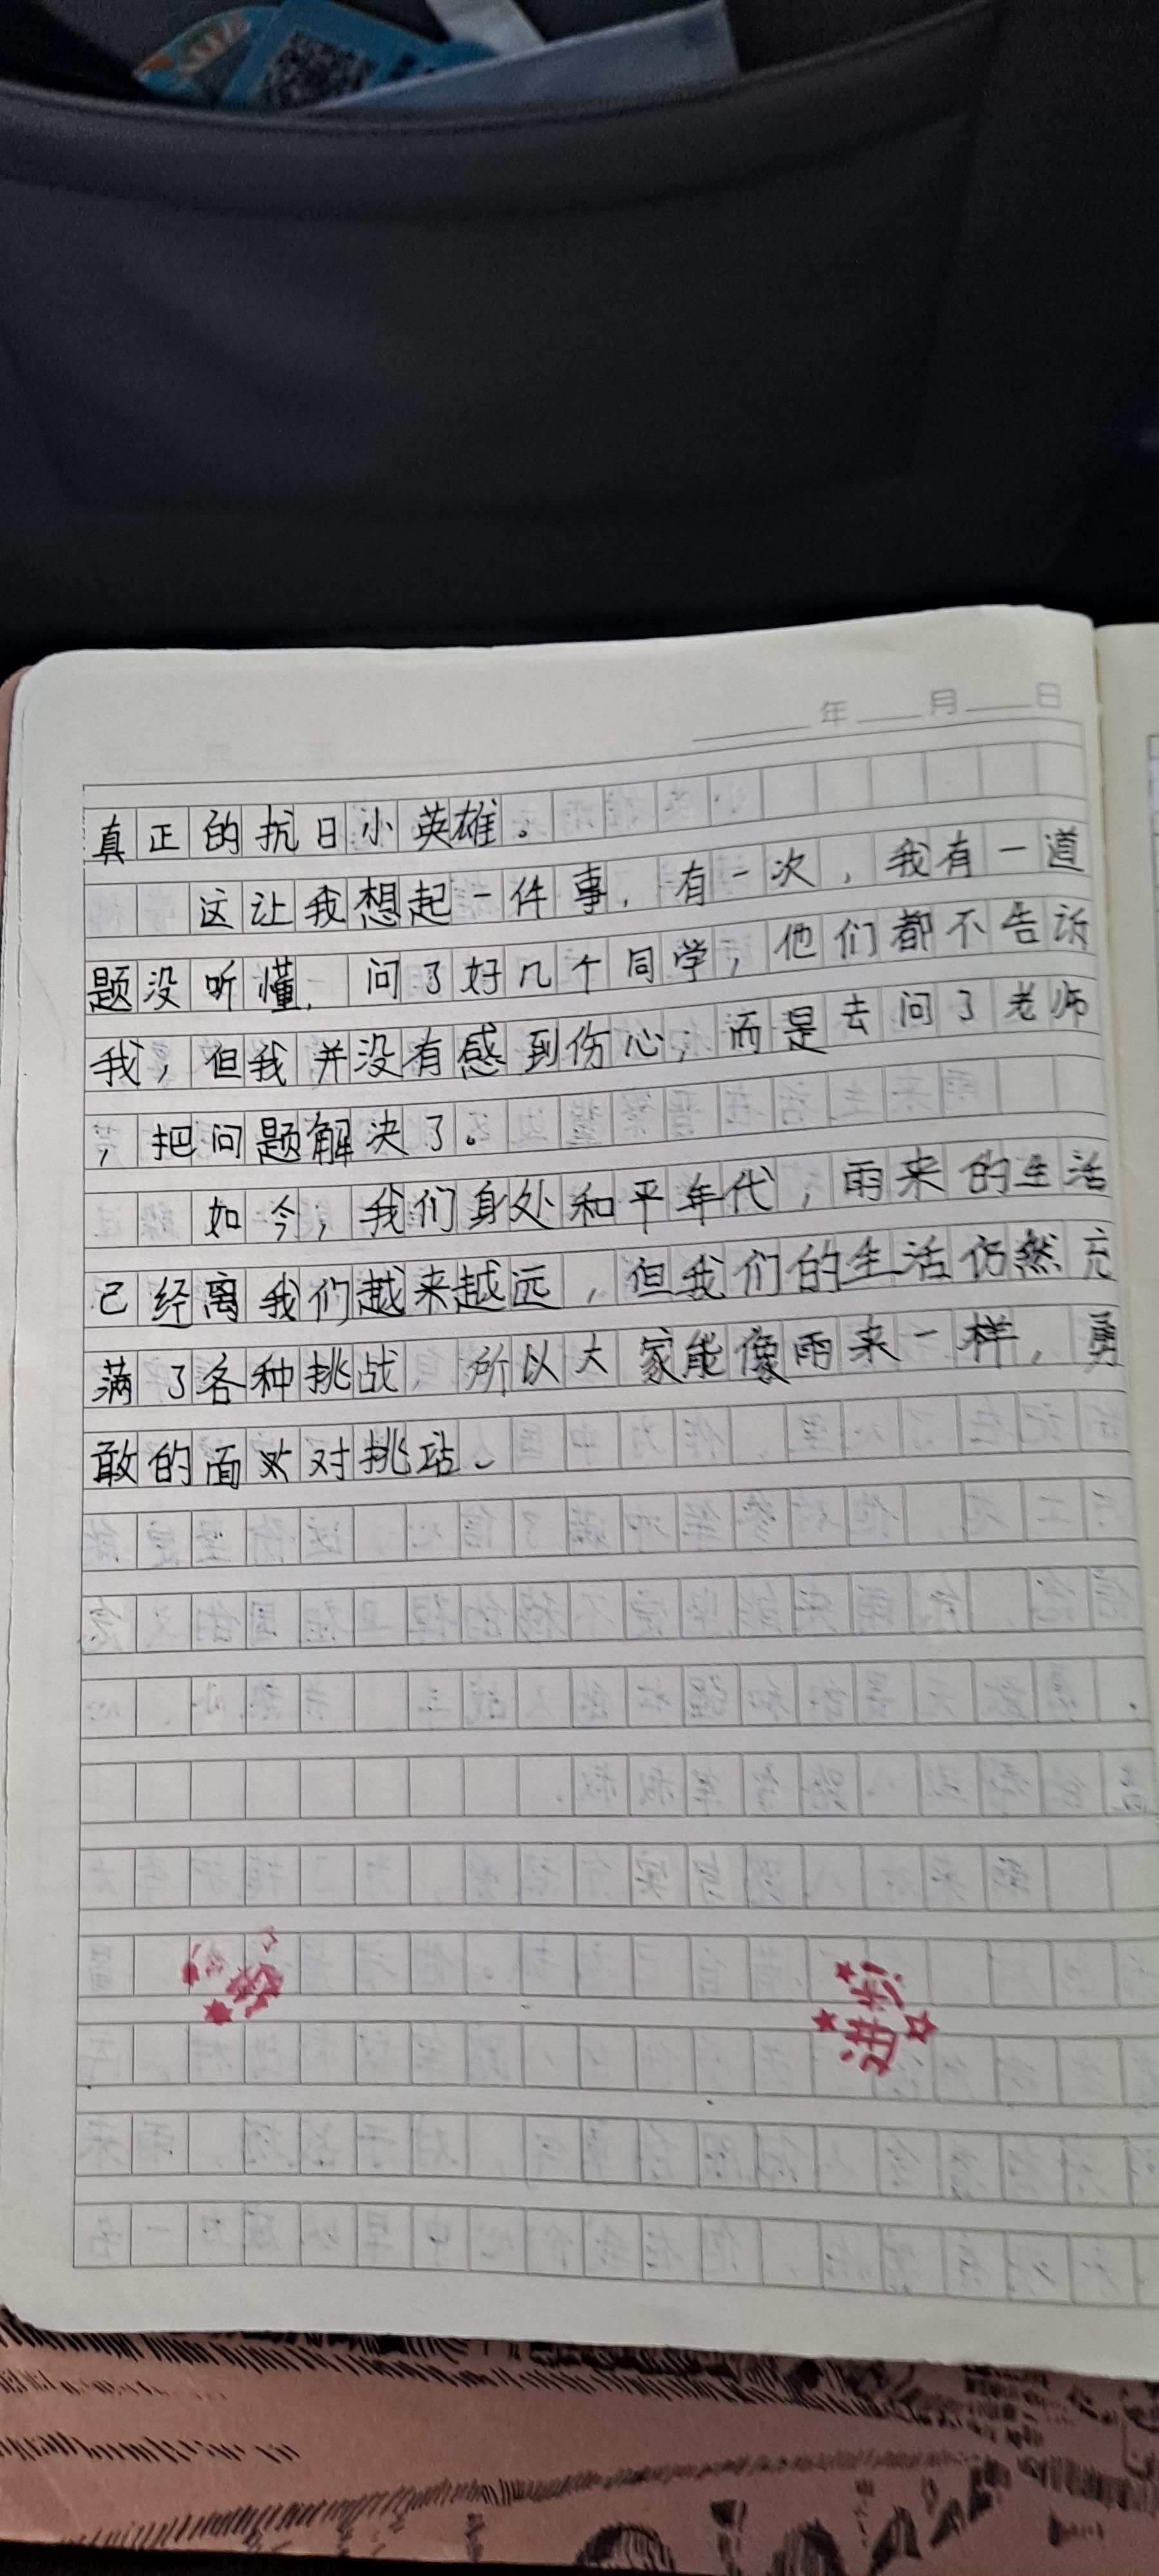 年 月 日
真正的抗日小英雄。
这让我想起一件事，有一次，我有一道
题没听懂，问了好几个同学，他们都不告诉
我，但我并没有感到伤心，而是去问了老师
，把问题解决了。
如今，我们身处和平年代，雨来的生活
已经离我们越来越远，但我们的生活仍然充
满了各种挑战，所以大家能像雨来一样，勇
敢的面对挑站。